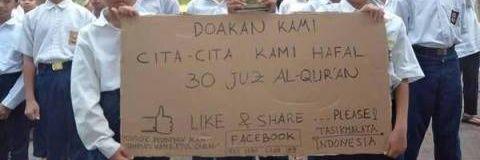 DOAKAN KAMI
CITA-CITA KAMI HAFAL
30 JUZ AL-QUR'AN
LIKE & SHARE ... PLEASE!
FACEBOOK
TASIKMALAYA
INDONESIA